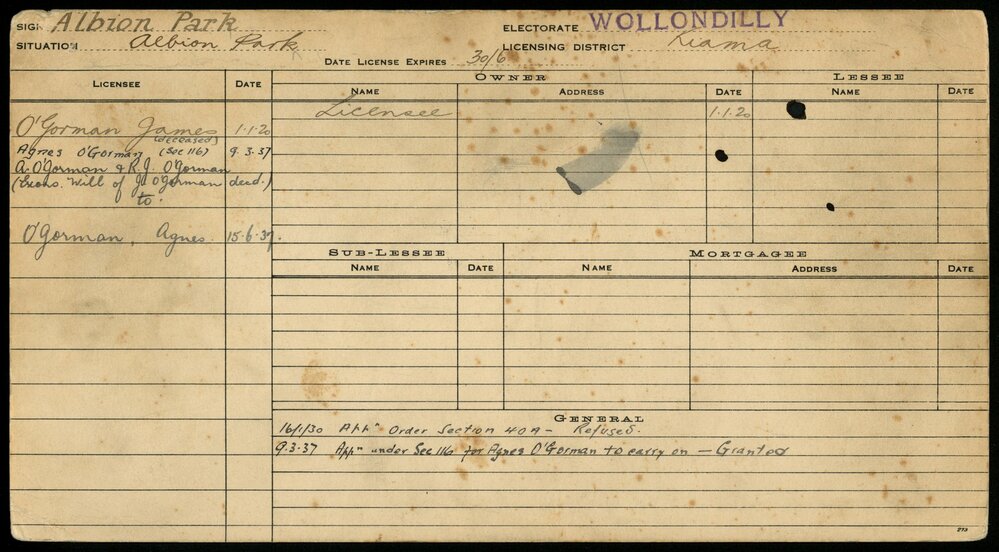 SIGN Albion Park
ELECTORATE WOLLONDILLY
SITUATION Albion Park
LICENSING DISTRICT Kiama
DATE LICENSE EXPIRES 30/6
LICENSEE DATE
OWNER
NAME ADDRESS DATE
LESSEE
NAME DATE
Licensee 1.1.20
O'Gorman James 1.1.20
(deceased)
Agnes O'Gorman (Sec 116) 9.3.37
A. O'Gorman & R.J. O'Gorman
(Exors. Will of J. O'Gorman decd.)
to.
O'Gorman, Agnes. 15.6.37.
SUB-LESSEE
NAME DATE
MORTGAGEE
NAME ADDRESS DATE
GENERAL
16/1/30 App" Order Section 40A - Refused.
9.3.37 App" under Sec 116 for Agnes O'Gorman to carry on - Granted
273